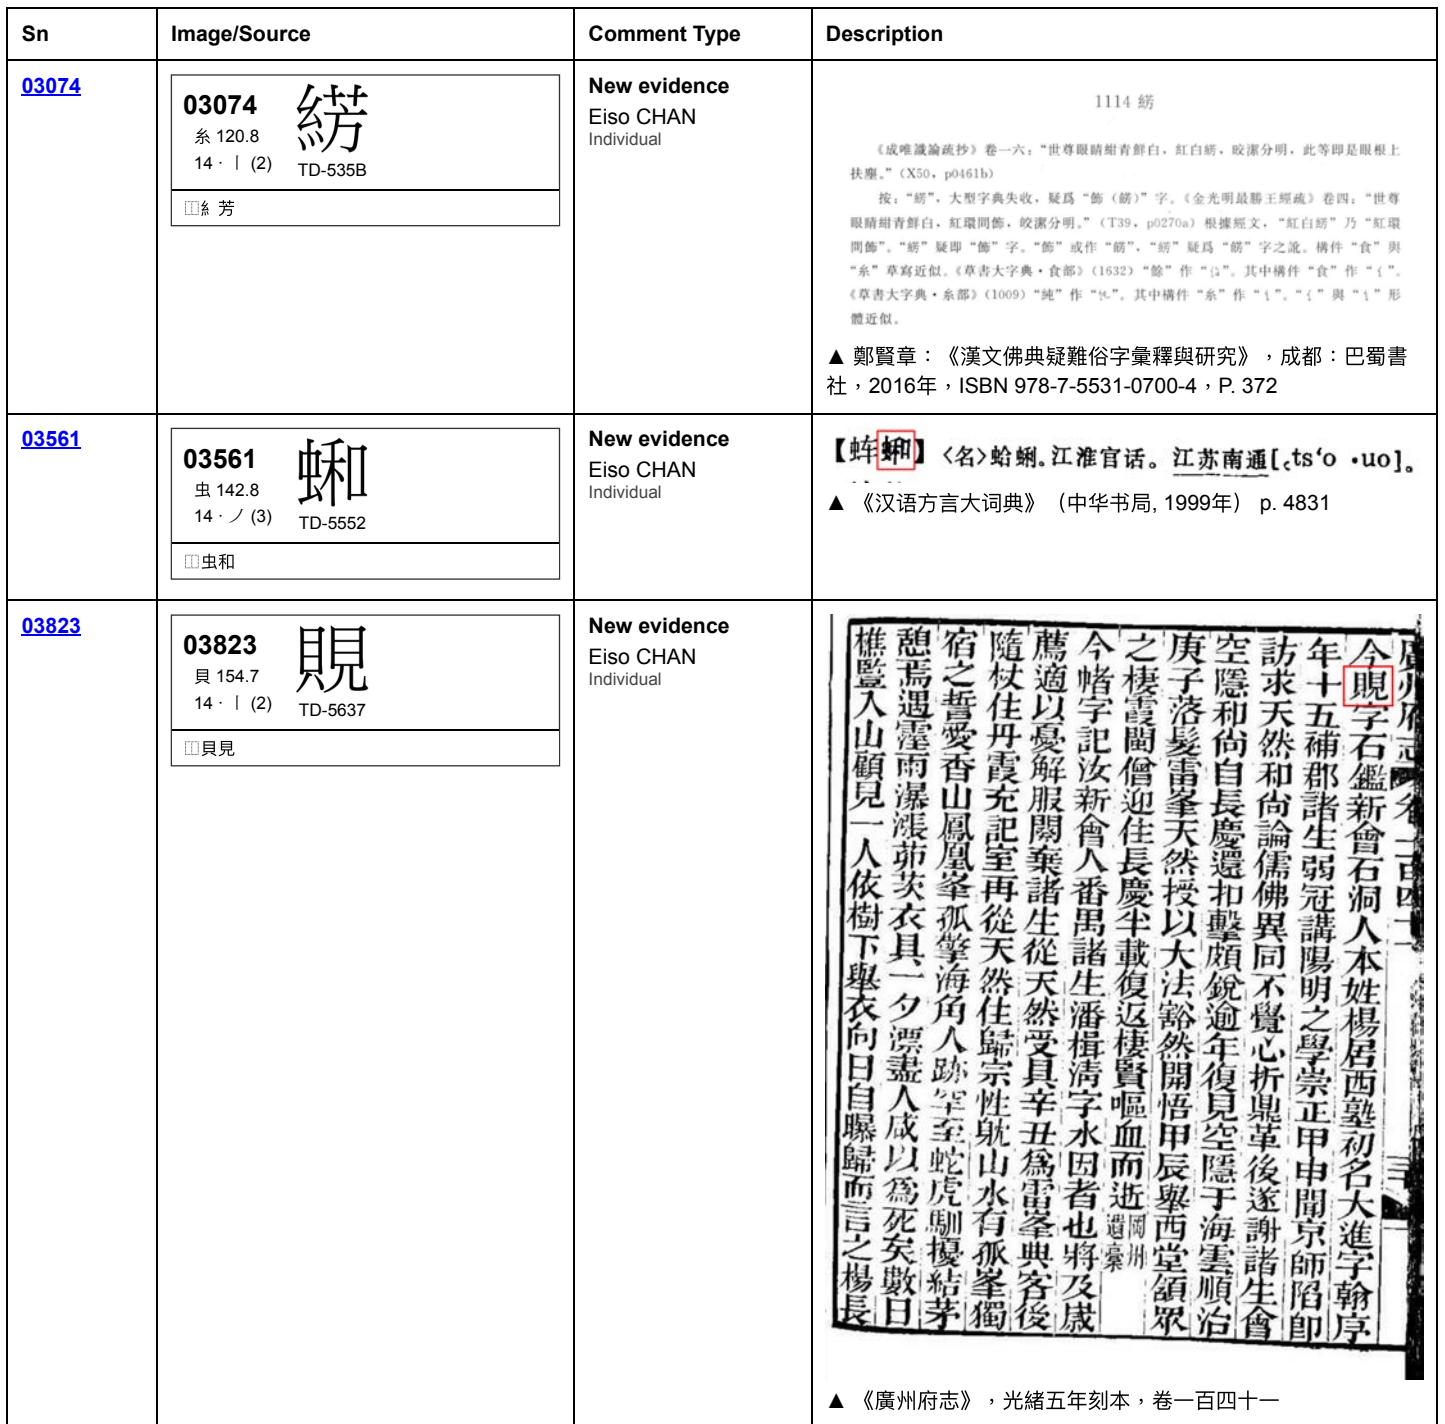 Sn Image/Source Comment Type Description
03074
03074
糸 120.8
14 · 丨 (2)
TD-535B
⿰糹芳
New evidence
Eiso CHAN
Individual
1114 䋽
《成唯識論疏抄》卷一六：“世尊眼睛紺青鮮白，紅白，皎潔分明，此等即是眼根上
扶塵。”（X50，p0461b）
按：“”，大型字典失收，疑爲“飾（餝）”字。《金光明最勝王經疏》卷四：“世尊
眼睛紺青鮮白，紅環間飾，皎潔分明。”（T39，p0270a）根據經文，“紅白”乃“紅環
間飾”。“”疑即“飾”字。“飾”或作“餝”，“”疑爲“餝”字之訛。構件“食”與
“糸”草寫近似。《草書大字典·食部》（1632）“餘”作“”。其中構件“食”作“”。
《草書大字典·糸部》（1009）“純”作“”。其中構件“糸”作“”。“”與“”形
體近似。
▲ 鄭賢章：《漢文佛典疑難俗字彙釋與研究》，成都：巴蜀書
社，2016年，ISBN 978-7-5531-0700-4，P. 372
03561
03561
虫 142.8
14 · ノ (3)
TD-5552
⿰虫和
New evidence
Eiso CHAN
Individual
【蛼⿰虫和】〈名〉蛤蜊。江淮官话。江苏南通[꜀tsʻo ·uo]。
▲ 《汉语方言大词典》（中华书局, 1999年） p. 4831
03823
03823
貝 154.7
14 · 丨 (2)
TD-5637
⿰貝見
New evidence
Eiso CHAN
Individual
廣州府志 卷一百四十一
今⿰貝見字石鑑新會石洞人本姓楊居西塾初名大進字翰序
年十五補郡諸生弱冠講陽明之學崇正甲申聞京師陷卽
訪求天然和尙論儒佛異同不覺心折鼎革後遂謝諸生會
空隱和尙自長慶還扣擊頗銳逾年復見空隱于海雲順治
庚子落髮雷峯天然授以大法豁然開悟甲辰舉西堂領眾
之棲霞閩僧迎住長慶半載復返棲賢嘔血而逝岡州遺稾
今帾字記汝新會人番禺諸生潘楫淸字水因者也將及歲
薦適以憂解服闋棄諸生從天然受具辛丑爲雷峯典客後
隨杖住丹霞充記室再從天然住歸宗性躭山水有孤峯獨
宿之誓愛香山鳳凰峯孤擎海角人跡罕至蛇虎馴擾結茅
憩焉遇霪雨瀑漲茆茨衣具一夕漂盡人咸以爲死矣數日
樵豎入山顧見一人依樹下舉衣向日自曝歸而言之楊長
▲ 《廣州府志》，光緒五年刻本，卷一百四十一